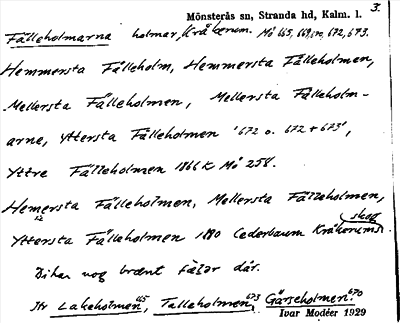 Mönsterås sn, Stranda hd, Kalm. l. 3.
Fälleholmarna holmar, Kråkerum. Mö 665, 669, 670, 672, 673.
Hemmersta Fälleholm, Hemmersta Fälleholmen,
Mellersta Fälleholmen, Mellersta Fälleholm-
arna, Yttersta Fälleholmen '672 o. 672 + 673',
Yttre Fälleholmen 1866 K Mö 254.
Hemersta Fälleholmen, Mellersta Fälleholmen,
Yttersta Fälleholmen 1890 Cederbaum Kråkerums skog
Di har nog bränt fäller där.
Jfr Lakeholmen, Talleholmen 673, Gårseholmen. 670
Ivar Modéer 1929